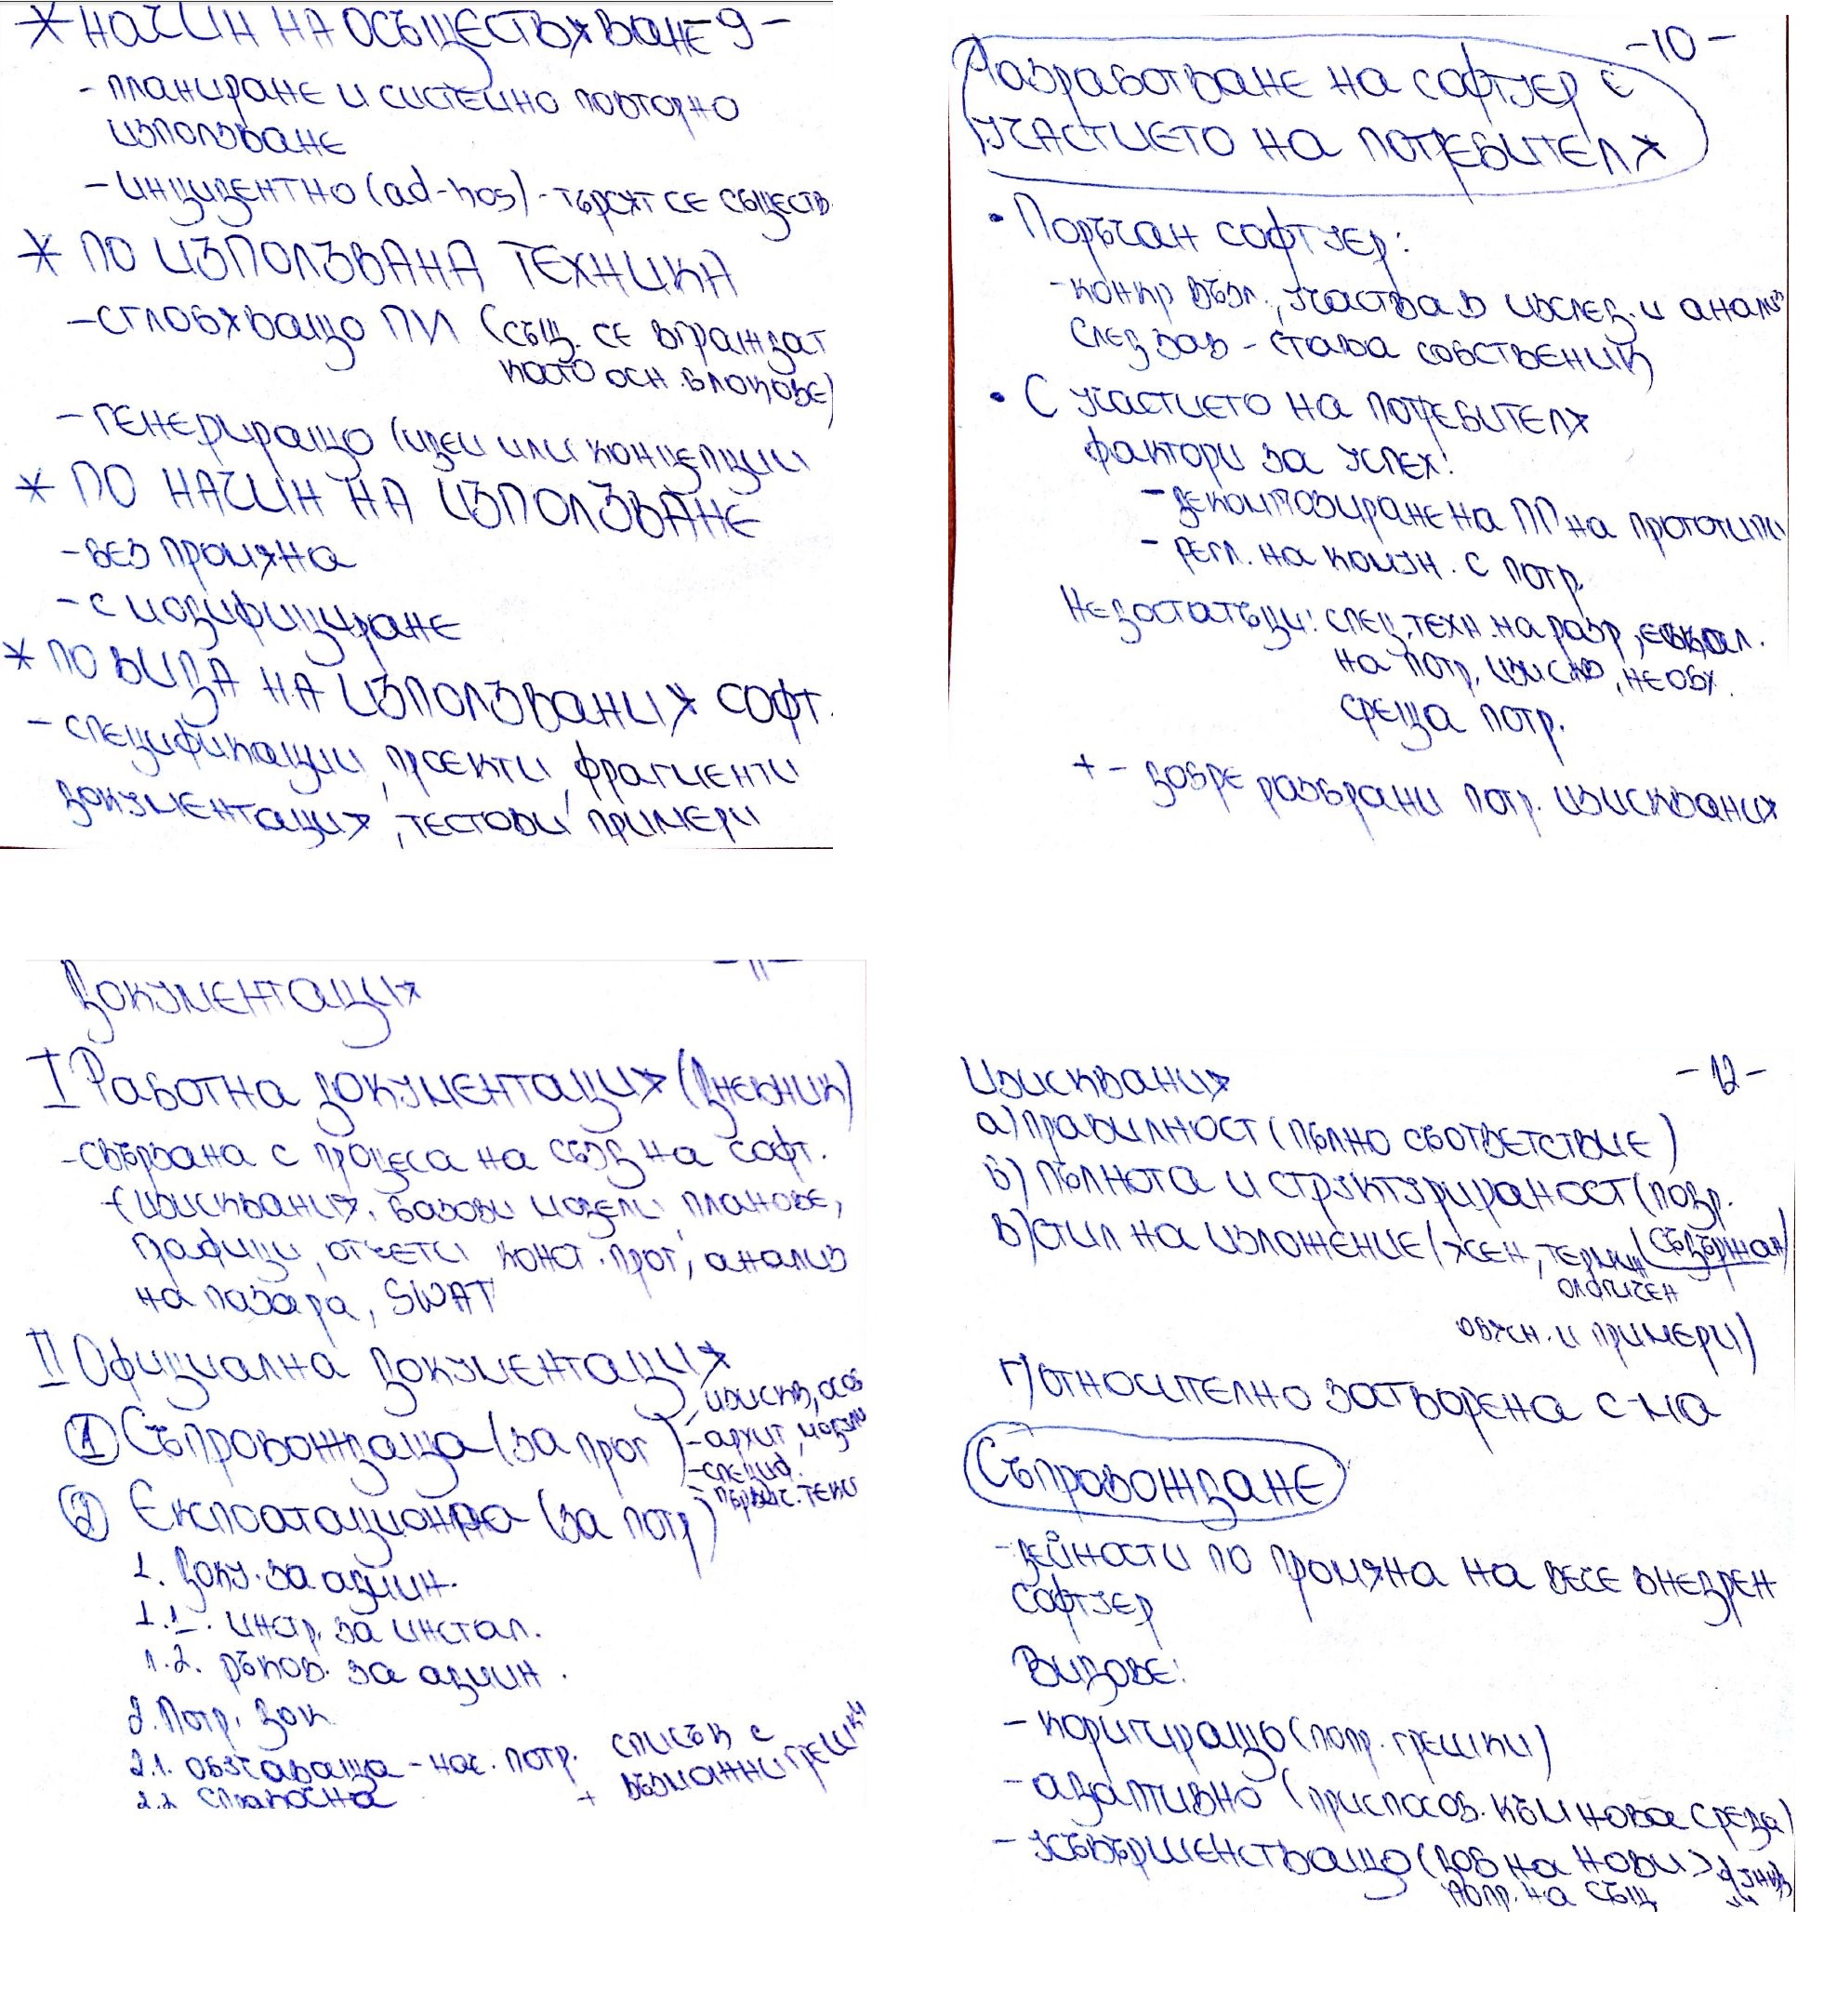 * НАЧИН НА ОСЪЩЕСТВЯВАНЕ -9-
- планиране и системно повторно
използване
- инцидентно (ad-hos) - търсят се съществ.
* ПО ИЗПОЛЗВАНА ТЕХНИКА
- сглобяващо ПИ (същ. се вграждат
като осн. блокове)
- генериращо (идеи или концепции
* ПО НАЧИН НА ИЗПОЛЗВАНЕ
- без промяна
- с модифициране
* ПО ВИДА НА ИЗПОЛЗВАНИЯ СОФТ.
- спецификации, проекти, фрагменти
документация, тестови примери
-10-
Разработване на софтуер с
участието на потребителя
• Поръчан софтуер:
- конкр възл., участва в изслед. и анализ
след зав - става собственик
• С участието на потребителя
фактори за успех:
- декомпозиране на ПП на прототипи
- регл. на комун. с потр.
Недостатъци: спец. техн. на разр,
на потр. изискв, необх.
среща потр.
+ - добре разбрани потр. изисквания
-11-
Документация
I Работна документация (Дневник)
- свързана с процеса на създ на софт.
- (изисквания, базови модели, планове,
графици, отчети конст. прог, анализ
на пазара, SWAT
II Официална документация
① Съпровождаща (за прог)
- изискв, особ
- архит, модули
- специф.
- първич. текст
② Експоатационна (за потр)
1. Доку. за админ.
1.1. инстр. за инстал.
1.2. ръков. за админ.
2. Потр. док
2.1. обучаваща - нач. потр.
2.2 справочна
+ списък с
възможни грешки
-12-
Изисквания
а) правилност (пълно съответствие)
б) пълнота и структурираност (подр.
съдържан)
в) стил на изложение (ясен, термин
ологичен
обясн. и примери)
г) относително затворена с-ма
Съпровождане
- дейности по промяна на вече внедрен
софтуер
Видове:
- коригиращо (попр. грешки)
- адаптивно (приспособ. към нова среда)
- усъвършенстващо (доб на нови
попр. на същ